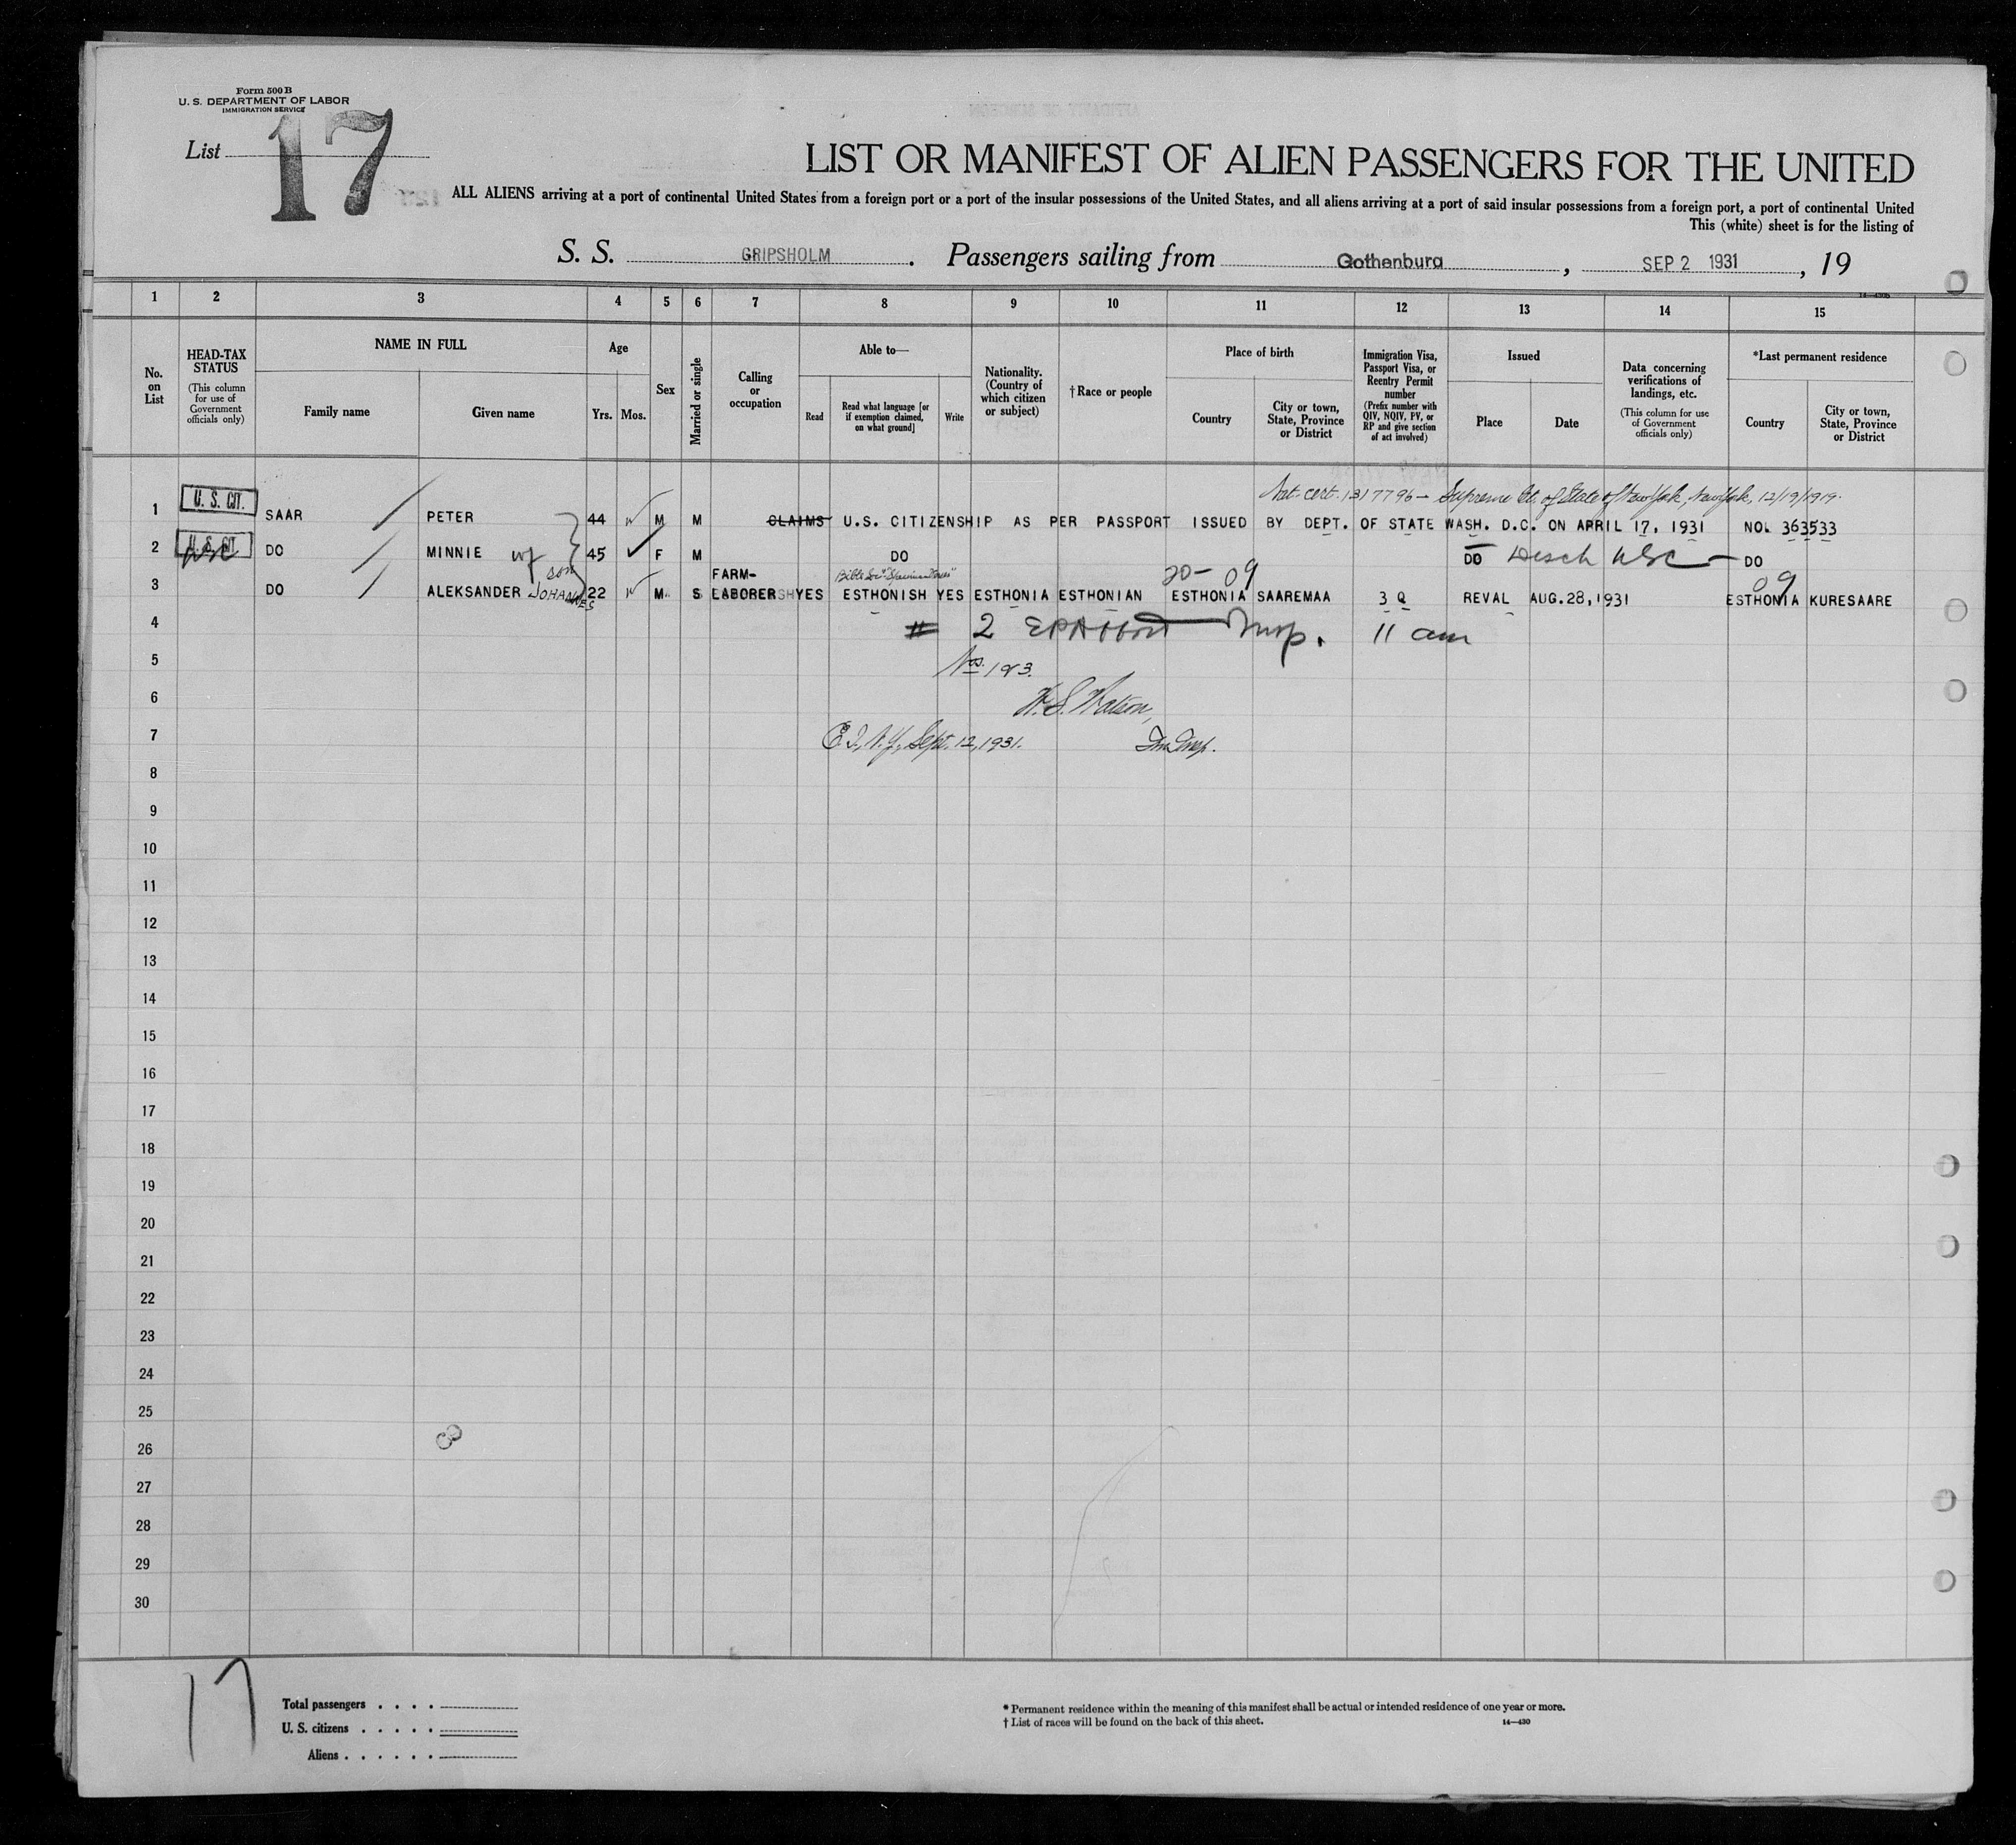 Form 500 B
U. S. DEPARTMENT OF LABOR
IMMIGRATION SERVICE
List 17
LIST OR MANIFEST OF ALIEN PASSENGERS FOR THE UNITED
ALL ALIENS arriving at a port of continental United States from a foreign port or a port of the insular possessions of the United States, and all aliens arriving at a port of said insular possessions from a foreign port, a port of continental United
This (white) sheet is for the listing of
S. S. GRIPSHOLM. Passengers sailing from Gothenburg, SEP 2 1931, 19
14—430b
1 2 3 4 5 6 7 8 9 10 11 12 13 14 15
No. on List
HEAD-TAX STATUS
(This column for use of Government officials only)
NAME IN FULL
Family name
Given name
Age
Yrs.
Mos.
Sex
Married or single
Calling or occupation
Able to—
Read
Read what language [or if exemption claimed, on what ground]
Write
Nationality. (Country of which citizen or subject)
†Race or people
Place of birth
Country
City or town, State, Province or District
Immigration Visa, Passport Visa, or Reentry Permit number
(Prefix number with QIV, NQIV, PV, or RP and give section of act involved)
Issued
Place
Date
Data concerning verifications of landings, etc.
(This column for use of Government officials only)
*Last permanent residence
Country
City or town, State, Province or District
Nat. cert. 1317796 — Supreme Ct. of State of New York, New York, 12/19/1919.
1 U. S. CIT. SAAR PETER 44 M M CLAIMS U.S. CITIZENSHIP AS PER PASSPORT ISSUED BY DEPT. OF STATE WASH. D.C. ON APRIL 17, 1931 NO. 363533
2 U. S. CIT. USC DO MINNIE wf 45 F M DO DO USC — DO
son
FARM-
20 — 09
09
3 DO ALEKSANDER JOHANNES 22 M S LABORER YES ESTHONISH YES ESTHONIA ESTHONIAN ESTHONIA SAAREMAA 3 Q REVAL AUG.28,1931 ESTHONIA KURESAARE
4 2 Insp. 11 am
5 Nos. 1&3.
6 H. S. Watson,
7 E. I., N. Y., Sept. 12, 1931. Im Insp.
8
9
10
11
12
13
14
15
16
17
18
19
20
21
22
23
24
25
26
27
28
29
30
17
Total passengers . . . .
U. S. citizens . . . . .
Aliens . . . . . .
* Permanent residence within the meaning of this manifest shall be actual or intended residence of one year or more.
† List of races will be found on the back of this sheet.
14—430